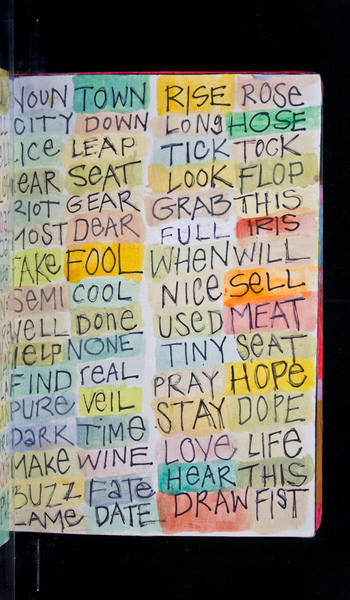 NOUN TOWN RISE ROSE
CITY DOWN LONG HOSE
LICE LEAP TICK TOCK
SEAT LOOK FLOP
RIOT GEAR GRAB THIS
MOST DEAR FULL IRIS
FOOL WHEN WILL
SEMI COOL NICE SELL
DONE USED MEAT
HELP NONE TINY SEAT
FIND REAL PRAY HOPE
PURE VEIL STAY DOPE
DARK TIME LOVE LIFE
MAKE WINE HEAR THIS
BUZZ FATE DRAW FIST
DATE